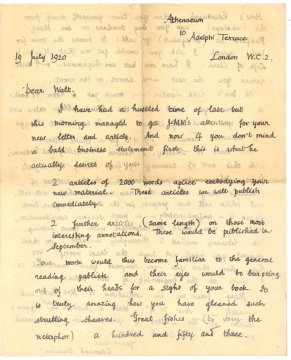 Athenaeum
10 Adelphi Terrace
19 July 1920 London W.C.2.
Dear Walt.
I have had a hustled time of late but
this morning managed to get J-MM's attention for your
new letter and article. And now, if you don't mind
a bald business statement first, this is what he
actually desires of you.
2 articles of 2000 words apiece embodying your
new material. These articles we will publish
immediately.
2 further articles (same length) on those most
interesting annotations. These would be published in
September.
Your work would thus become familiar to the general
reading public and their eyes would be bursting
out of their heads for a sight of your book. It
is truly amazing how you have gleaned such
strutting sheaves. Great fishes (to vary the
metaphor) a hundred and fifty and three.